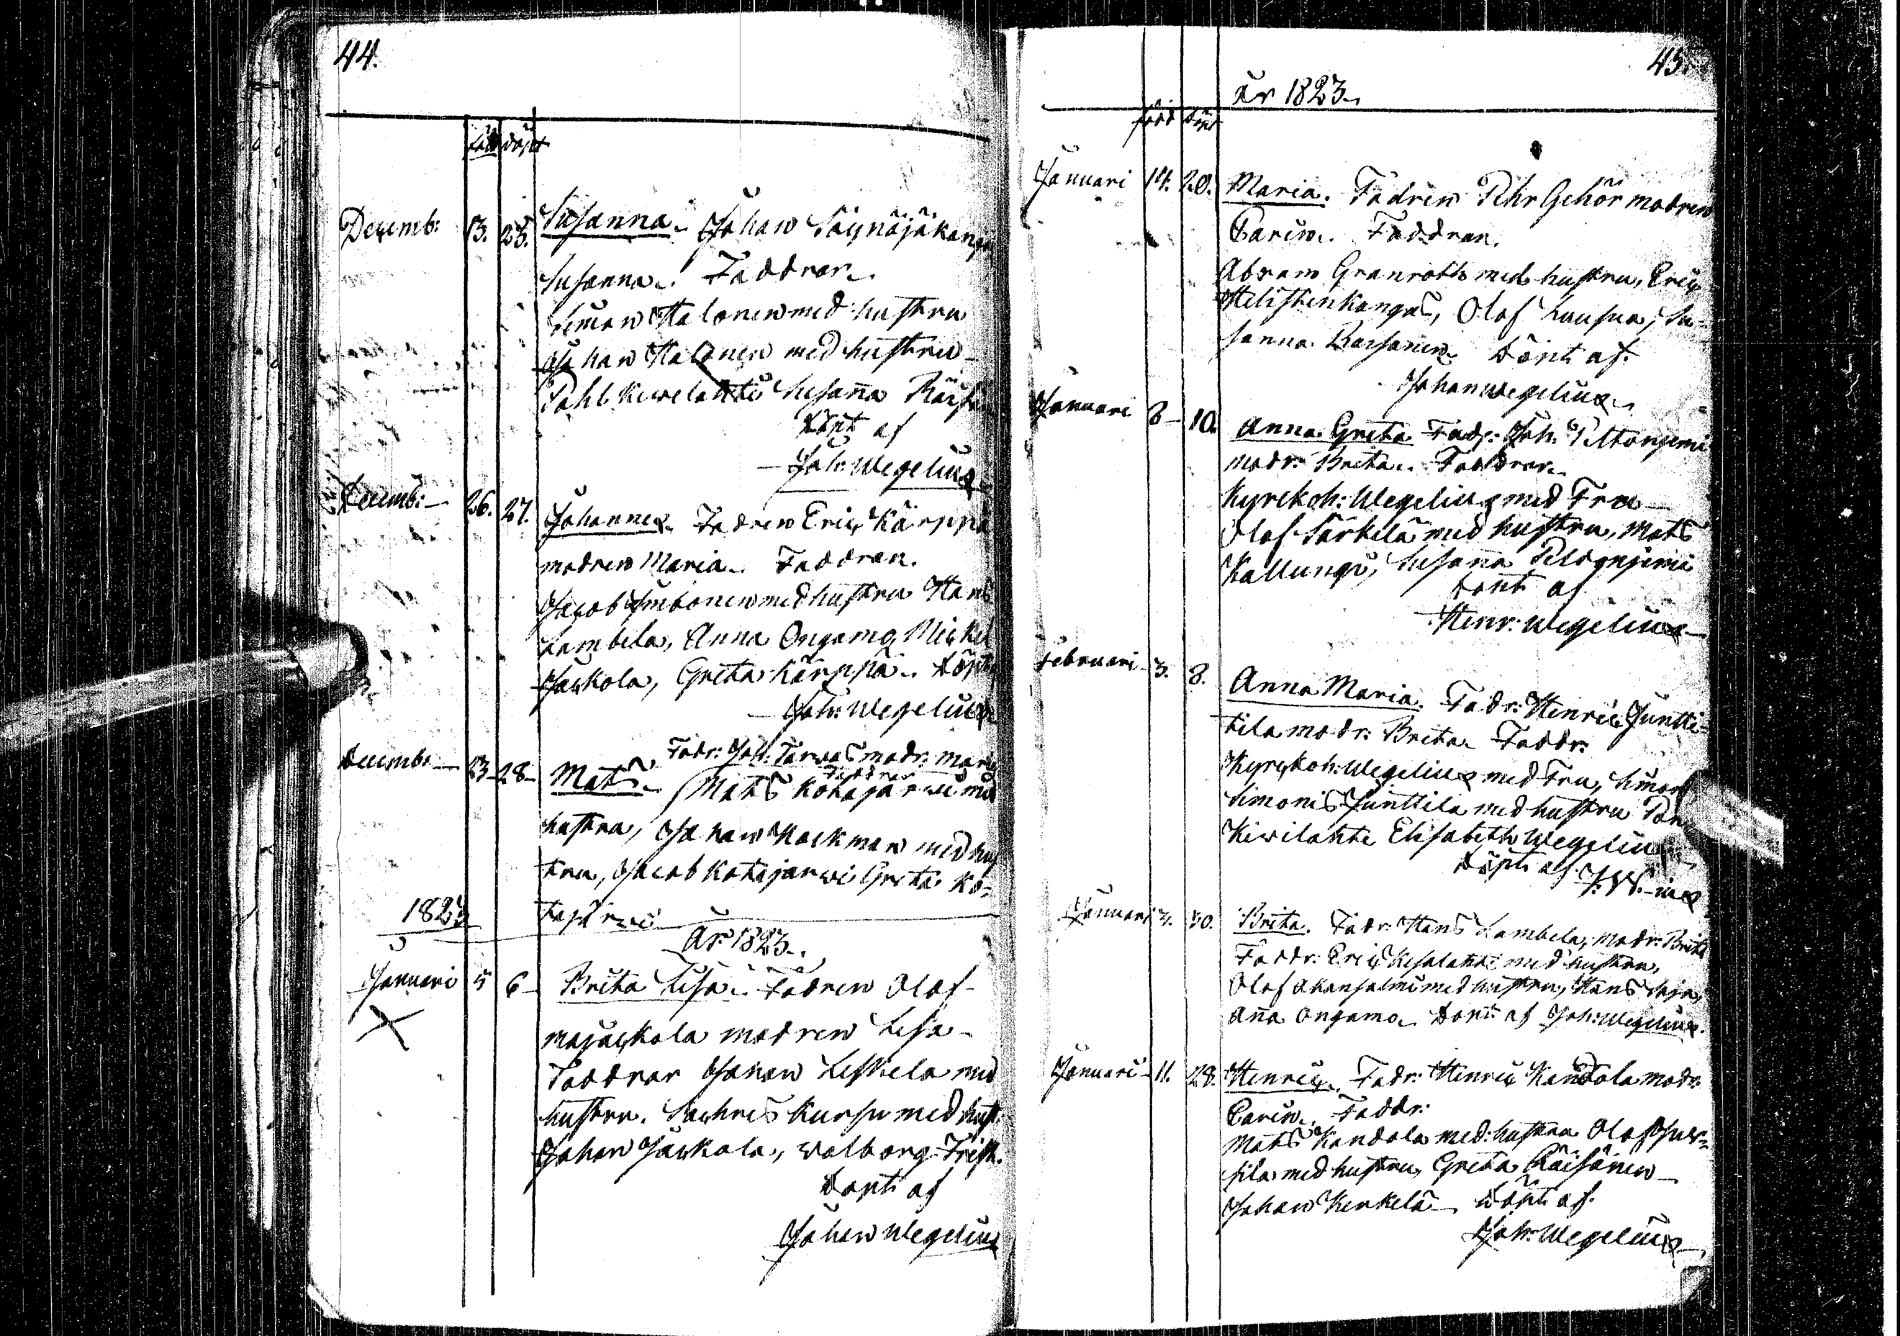 44.
född döpt
Decemb: 13. 25. Susanna. Johan Säynäjäkangas
Susanna. Faddrar.
Simon Halonen med hustru
Johan Halonen med hustru
Påhl Kiwelahti Susanna
döpt af
Joh: Wegelius
Decemb: 26. 27. Johannes. Fadren Eric Kärppä
modren Maria. Faddrar.
Jacob med hustru Hans
Lambela, Anna Ongamo, Mickel
Jackola, Greta Kärppä. döpt
Joh: Wegelius
Fadr: Joh: Tarwas modr: Maria
Decemb: 23 28 Mats. Faddrar Mats Kotajärwi med
hustru, Johan Hackman med hus
tru, Jacob Kotajärwi Greta Ko-
tajärwi
1823
År 1823.
Januari 5 6 Brita Lisa. Fadren Olof
modren Lisa
Faddrar Johan Leskela med
hustru. Kursu med hust:
Johan Jackola, Walborg
döpt af
Johan Wegelius
45.
år 1823.
född döpt
Januari 14. 20. Maria. Fadren Pehr Gehör modren
Carin. Faddrar.
Abram Granroth med hustru, Eric
Helistenkangas, Olof Kursua, Su-
sanna Raisanen. döpt af.
Johan Wegelius
Januari 8 10. Anna Greta Fadr: Joh: Peltoniemi
modr: Brita. Faddrar
Kyrckoh: Wegelius med Fru
Olof Särkelä med hustru, Mats
Kallunge, Susanna Peldoniemi
döpt af
Henr: Wegelius
Februari 3. 8. Anna Maria. Fadr: Henric Juntti-
tila modr: Brita. Faddr:
Kyrckoh: Wegelius med Fru, Simon
Simonis Junttila med hustru
Kiwilahti Elisabeth Wegelius
döpt af J. W-ius
Januari 30. Brita. Fadr: Hans Lambela, modr: Brita
Faddr: Eric Kesalahti med hustru,
Olof Akanjalmi med hustru, Hans
Anna Ongamo. döpt af Joh: Wegelius.
Januari 11. 28. Henric. Fadr: Henric Kandola modr:
Carin. Faddr:
Mats Kandola med hustru Olof
sila med hustru, Greta Räisänen
Johan Kerkelä döpt af.
Joh: Wegelius